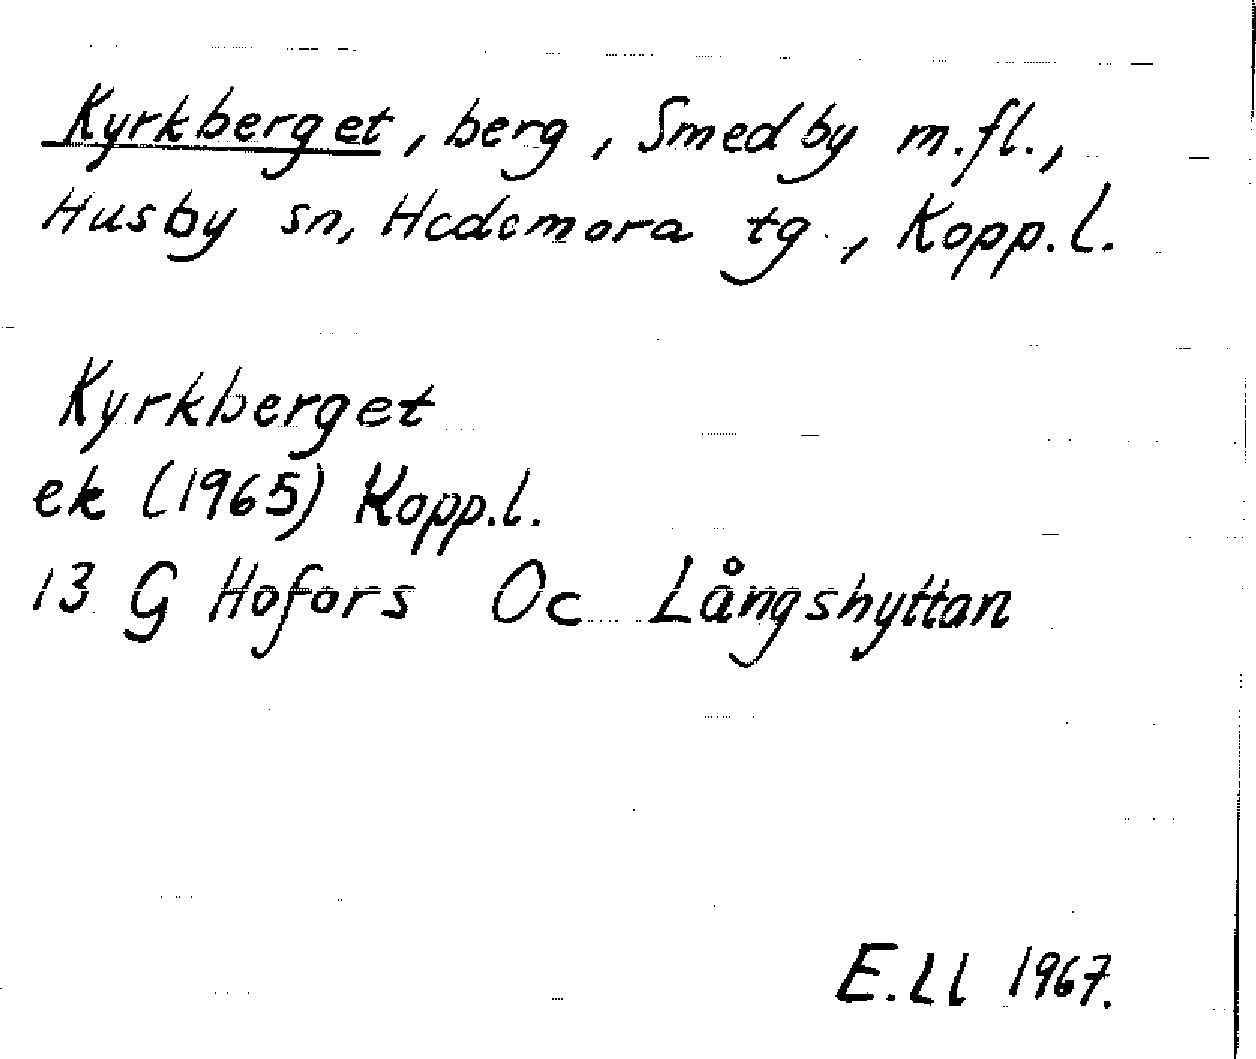 Kyrkberget, berg, Smedby m.fl.,
Husby sn, Hedemora tg., Kopp.l.
Kyrkberget
ek (1965) Kopp.l.
13 G Hofors Oc Långshyttan
E.Ll 1967.